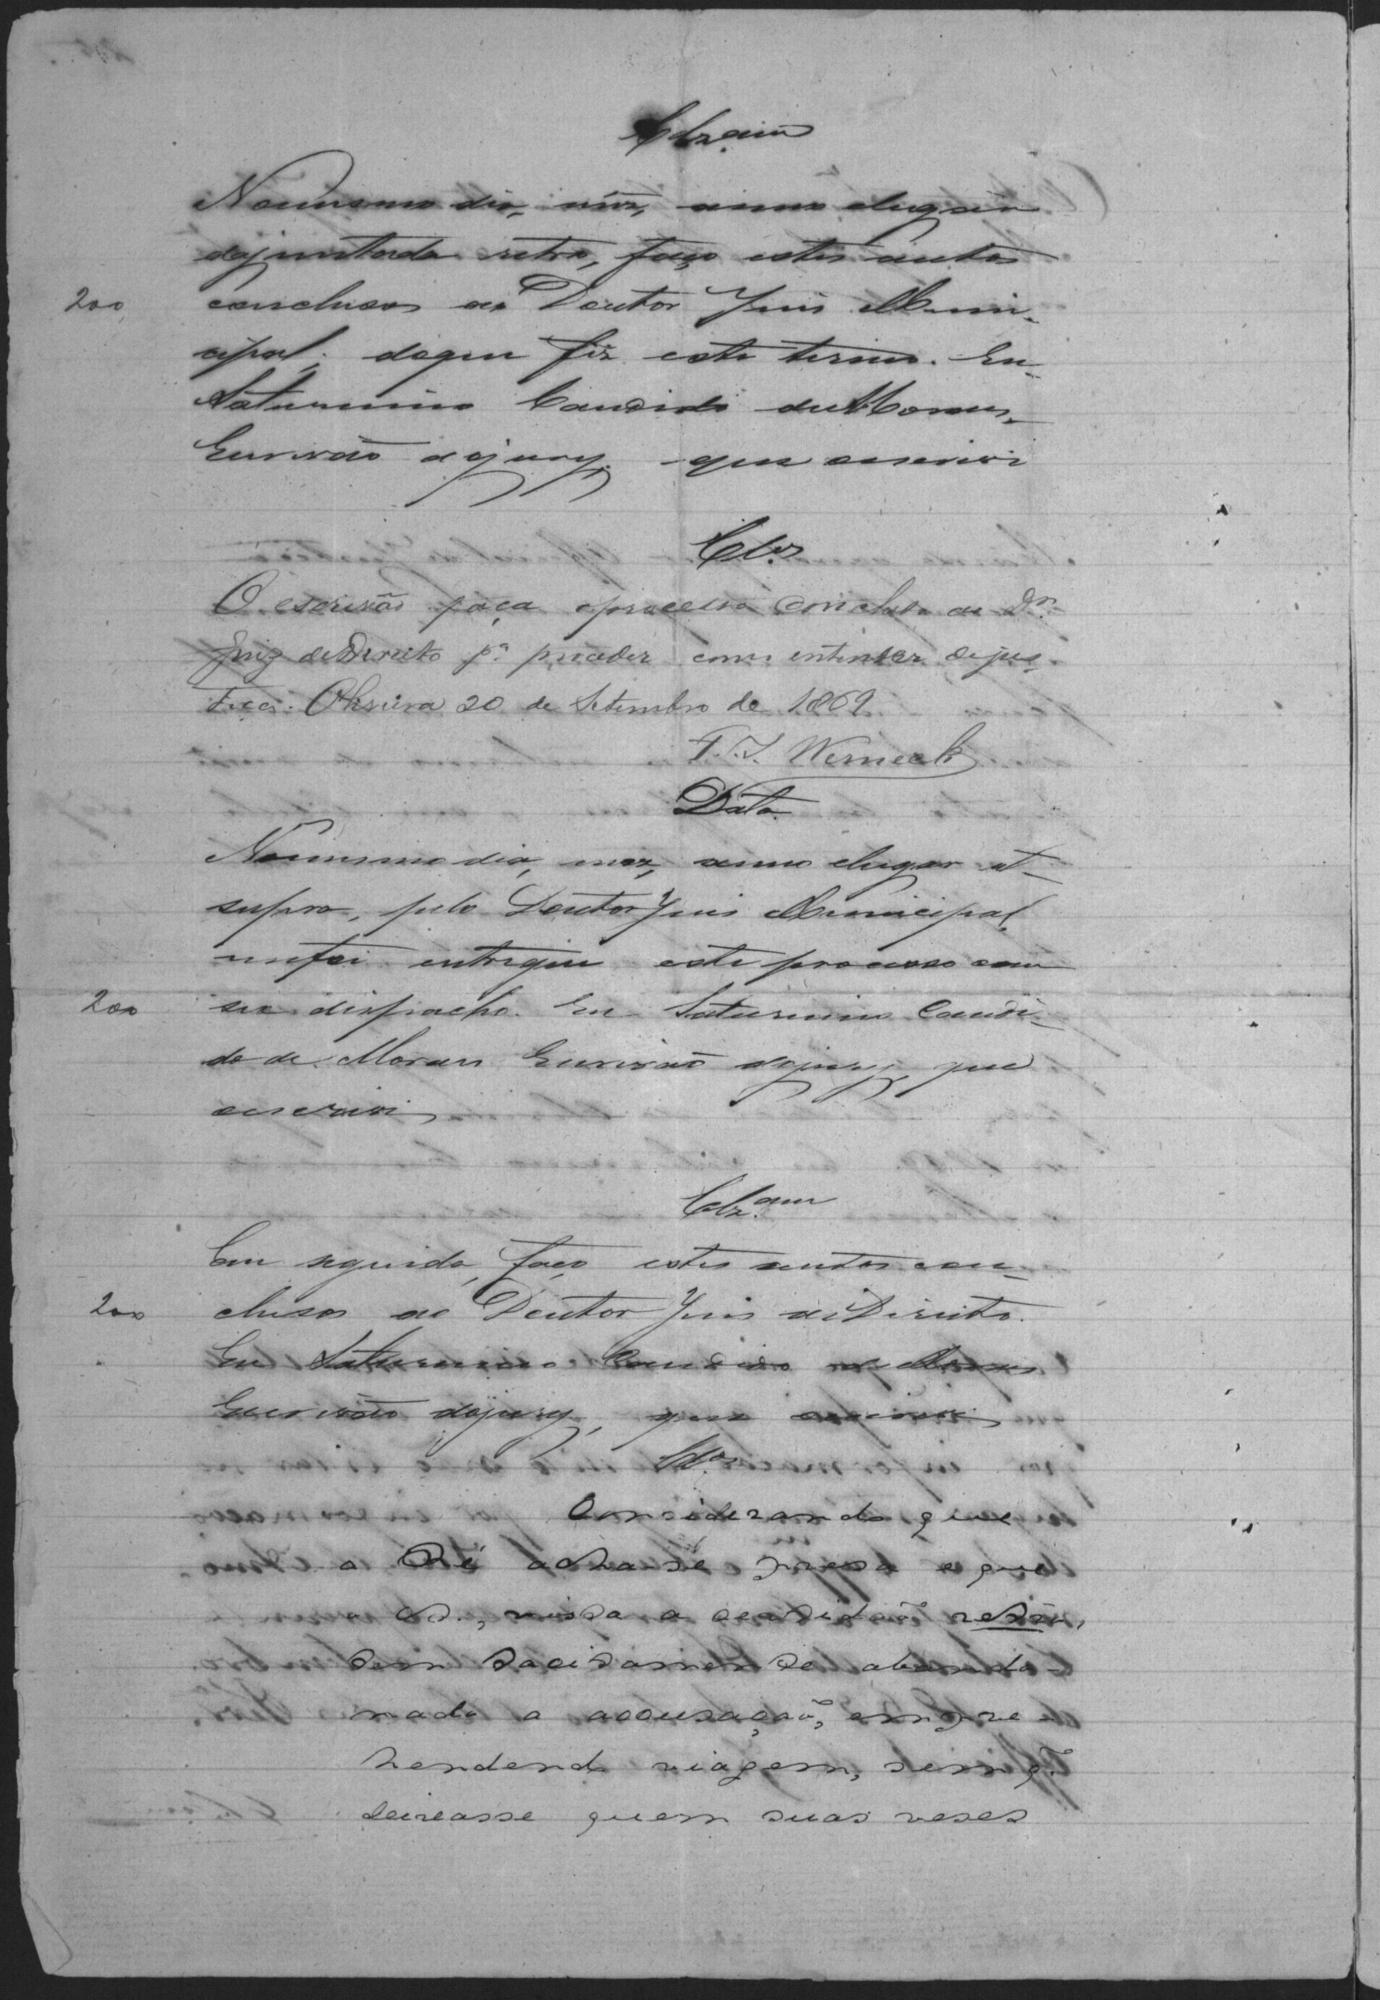 Clz.am
No mesmo dia, mez, anno elugar
dajuntada retro, faço estes autos
200 conclusos ao Doutor Juis Muni-
cipal; doque fiz este termo. Eu
Saturnino Candido de Moraes,
Escrivão dojury, que escrevi
Clz.
O escrivão faça oprocesso concluso ao Dr.
Juiz de Direito pa. proceder como entender dejus-
tiça. 20 de Setembro de 1869
F. J. Werneck
Data
No mesmo dia, mez, anno elugar ut
supra, pelo Doutor Juis Municipal
mefoi entregue este processo com
200 seu dispacho. Eu Saturnino Candi-
do de Moraes Escrivão dojury, que
escrevi
Clz.am
Em seguida, faço estes autos con-
200 clusos ao Doutor Juis de Direito.
Eu Saturnino Candido de Moraes
Escrivão dojury, que escrevi
Clz.
Considerando que
a Ré acha-se presa e que
o A., vista a certidão retro,
tem tacitamente abando-
nado a accusação, empre-
hendendo viagem, sem q.
deixasse quem suas veses